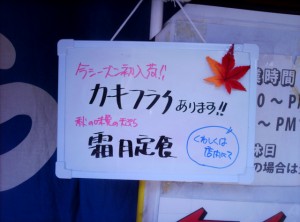 今シーズン初入荷!!
カキフライあります!!
秋の味覚の
霜月定食
くわしくは
店内にて
業時間
0～P
～PM
休日
の場合は